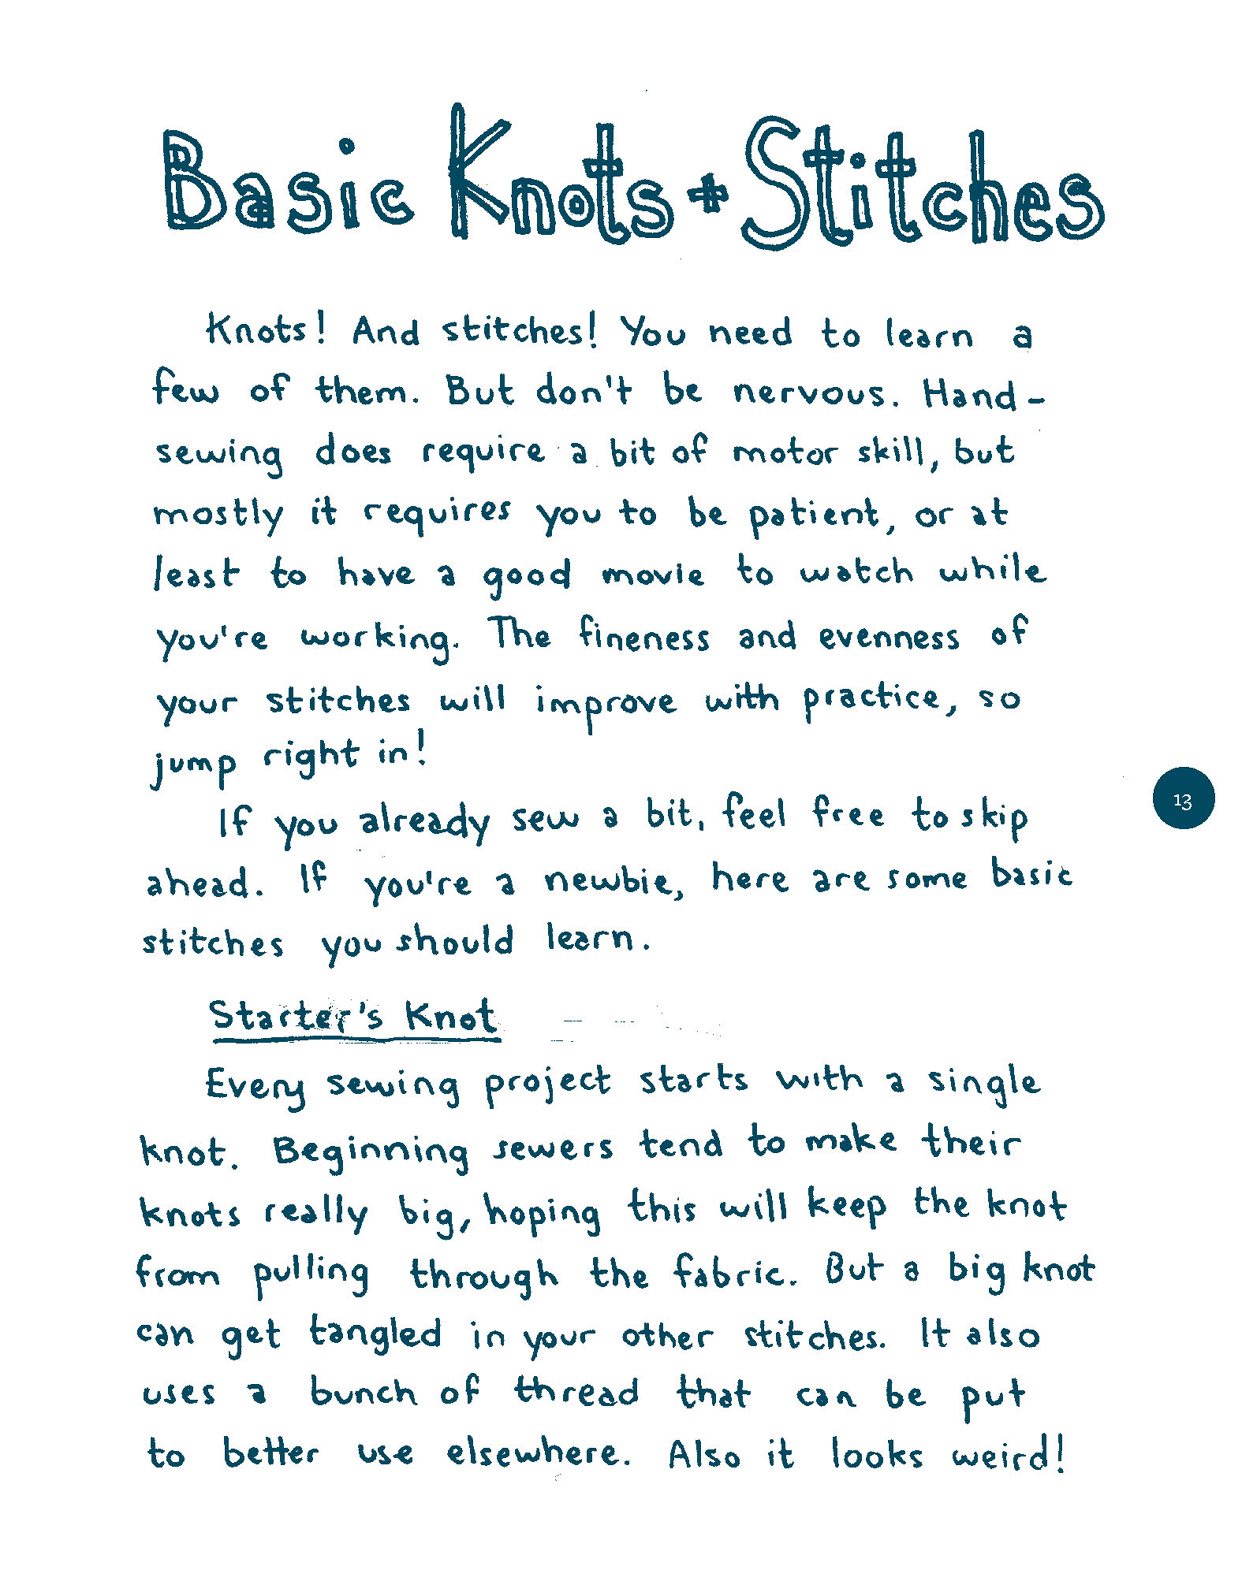 Basic Knots + Stitches
Knots! And stitches! You need to learn a
few of them. But don't be nervous. Hand-
sewing does require a bit of motor skill, but
mostly it requires you to be patient, or at
least to have a good movie to watch while
you're working. The fineness and evenness of
your stitches will improve with practice, so
jump right in!
13
If you already sew a bit, feel free to skip
ahead. If you're a newbie, here are some basic
stitches you should learn.
Starter's Knot
Every sewing project starts with a single
knot. Beginning sewers tend to make their
knots really big, hoping this will keep the knot
from pulling through the fabric. But a big knot
can get tangled in your other stitches. It also
uses a bunch of thread that can be put
to better use elsewhere. Also it looks weird!